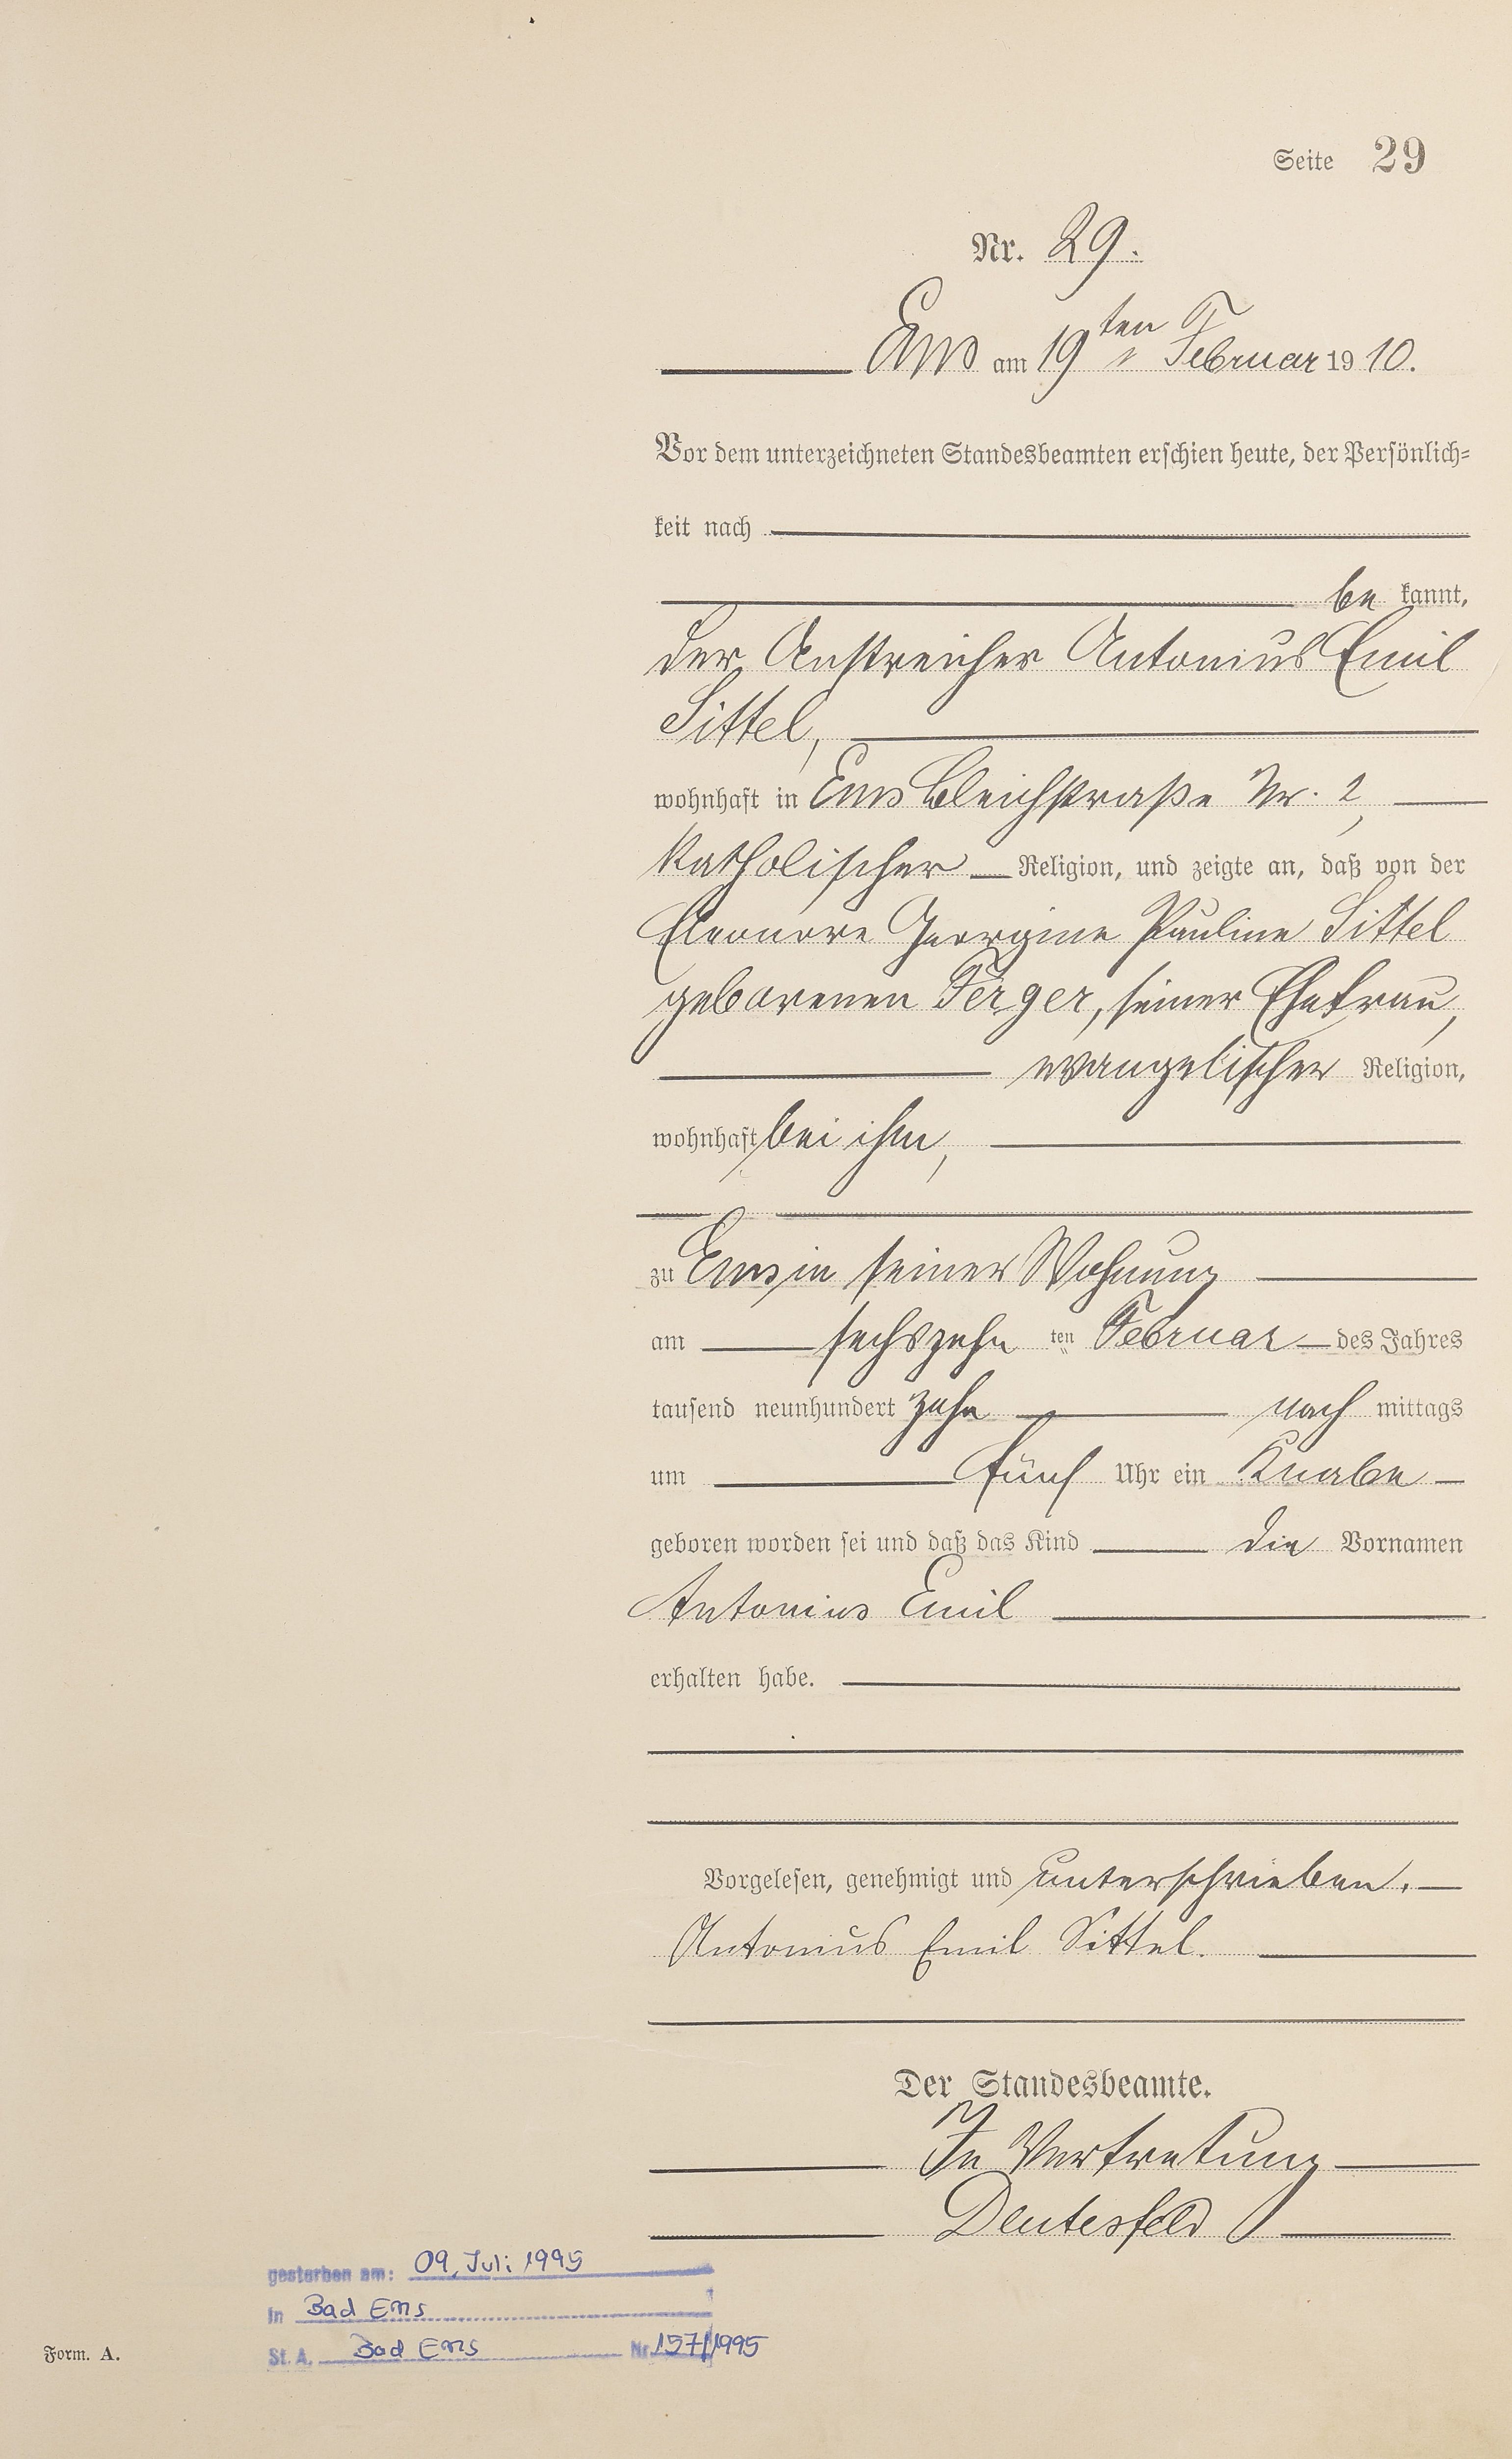 Seite 29
Nr. 29.
Ems am 19ten Februar 1910.
Vor dem unterzeichneten Standesbeamten erschien heute, der Persönlich-
keit nach
be kannt,
der Anstreicher Antonius Emil
Sittel,
wohnhaft in Ems Bleichstraße Nr. 2,
katholischer Religion, und zeigte an, daß von der
Eleonore Georgine Pauline Sittel
geborenen Ferger, seiner Ehefrau,
evangelischer Religion,
wohnhaft bei ihm,
zu Ems in seiner Wohnung
am sechszehn ten Februar des Jahres
tausend neunhundert zehn nach mittags
um fünf Uhr ein Knabe
geboren worden sei und daß das Kind die Vornamen
Antonius Emil
erhalten habe.
Vorgelesen, genehmigt und unterschrieben.
Antonius Emil Sittel.
Der Standesbeamte.
In Vertretung
Deutesfeld
gestorben am: 09. Juli 1995
in Bad Ems
St. A. Bad Ems Nr. 157/1995
Form. A.